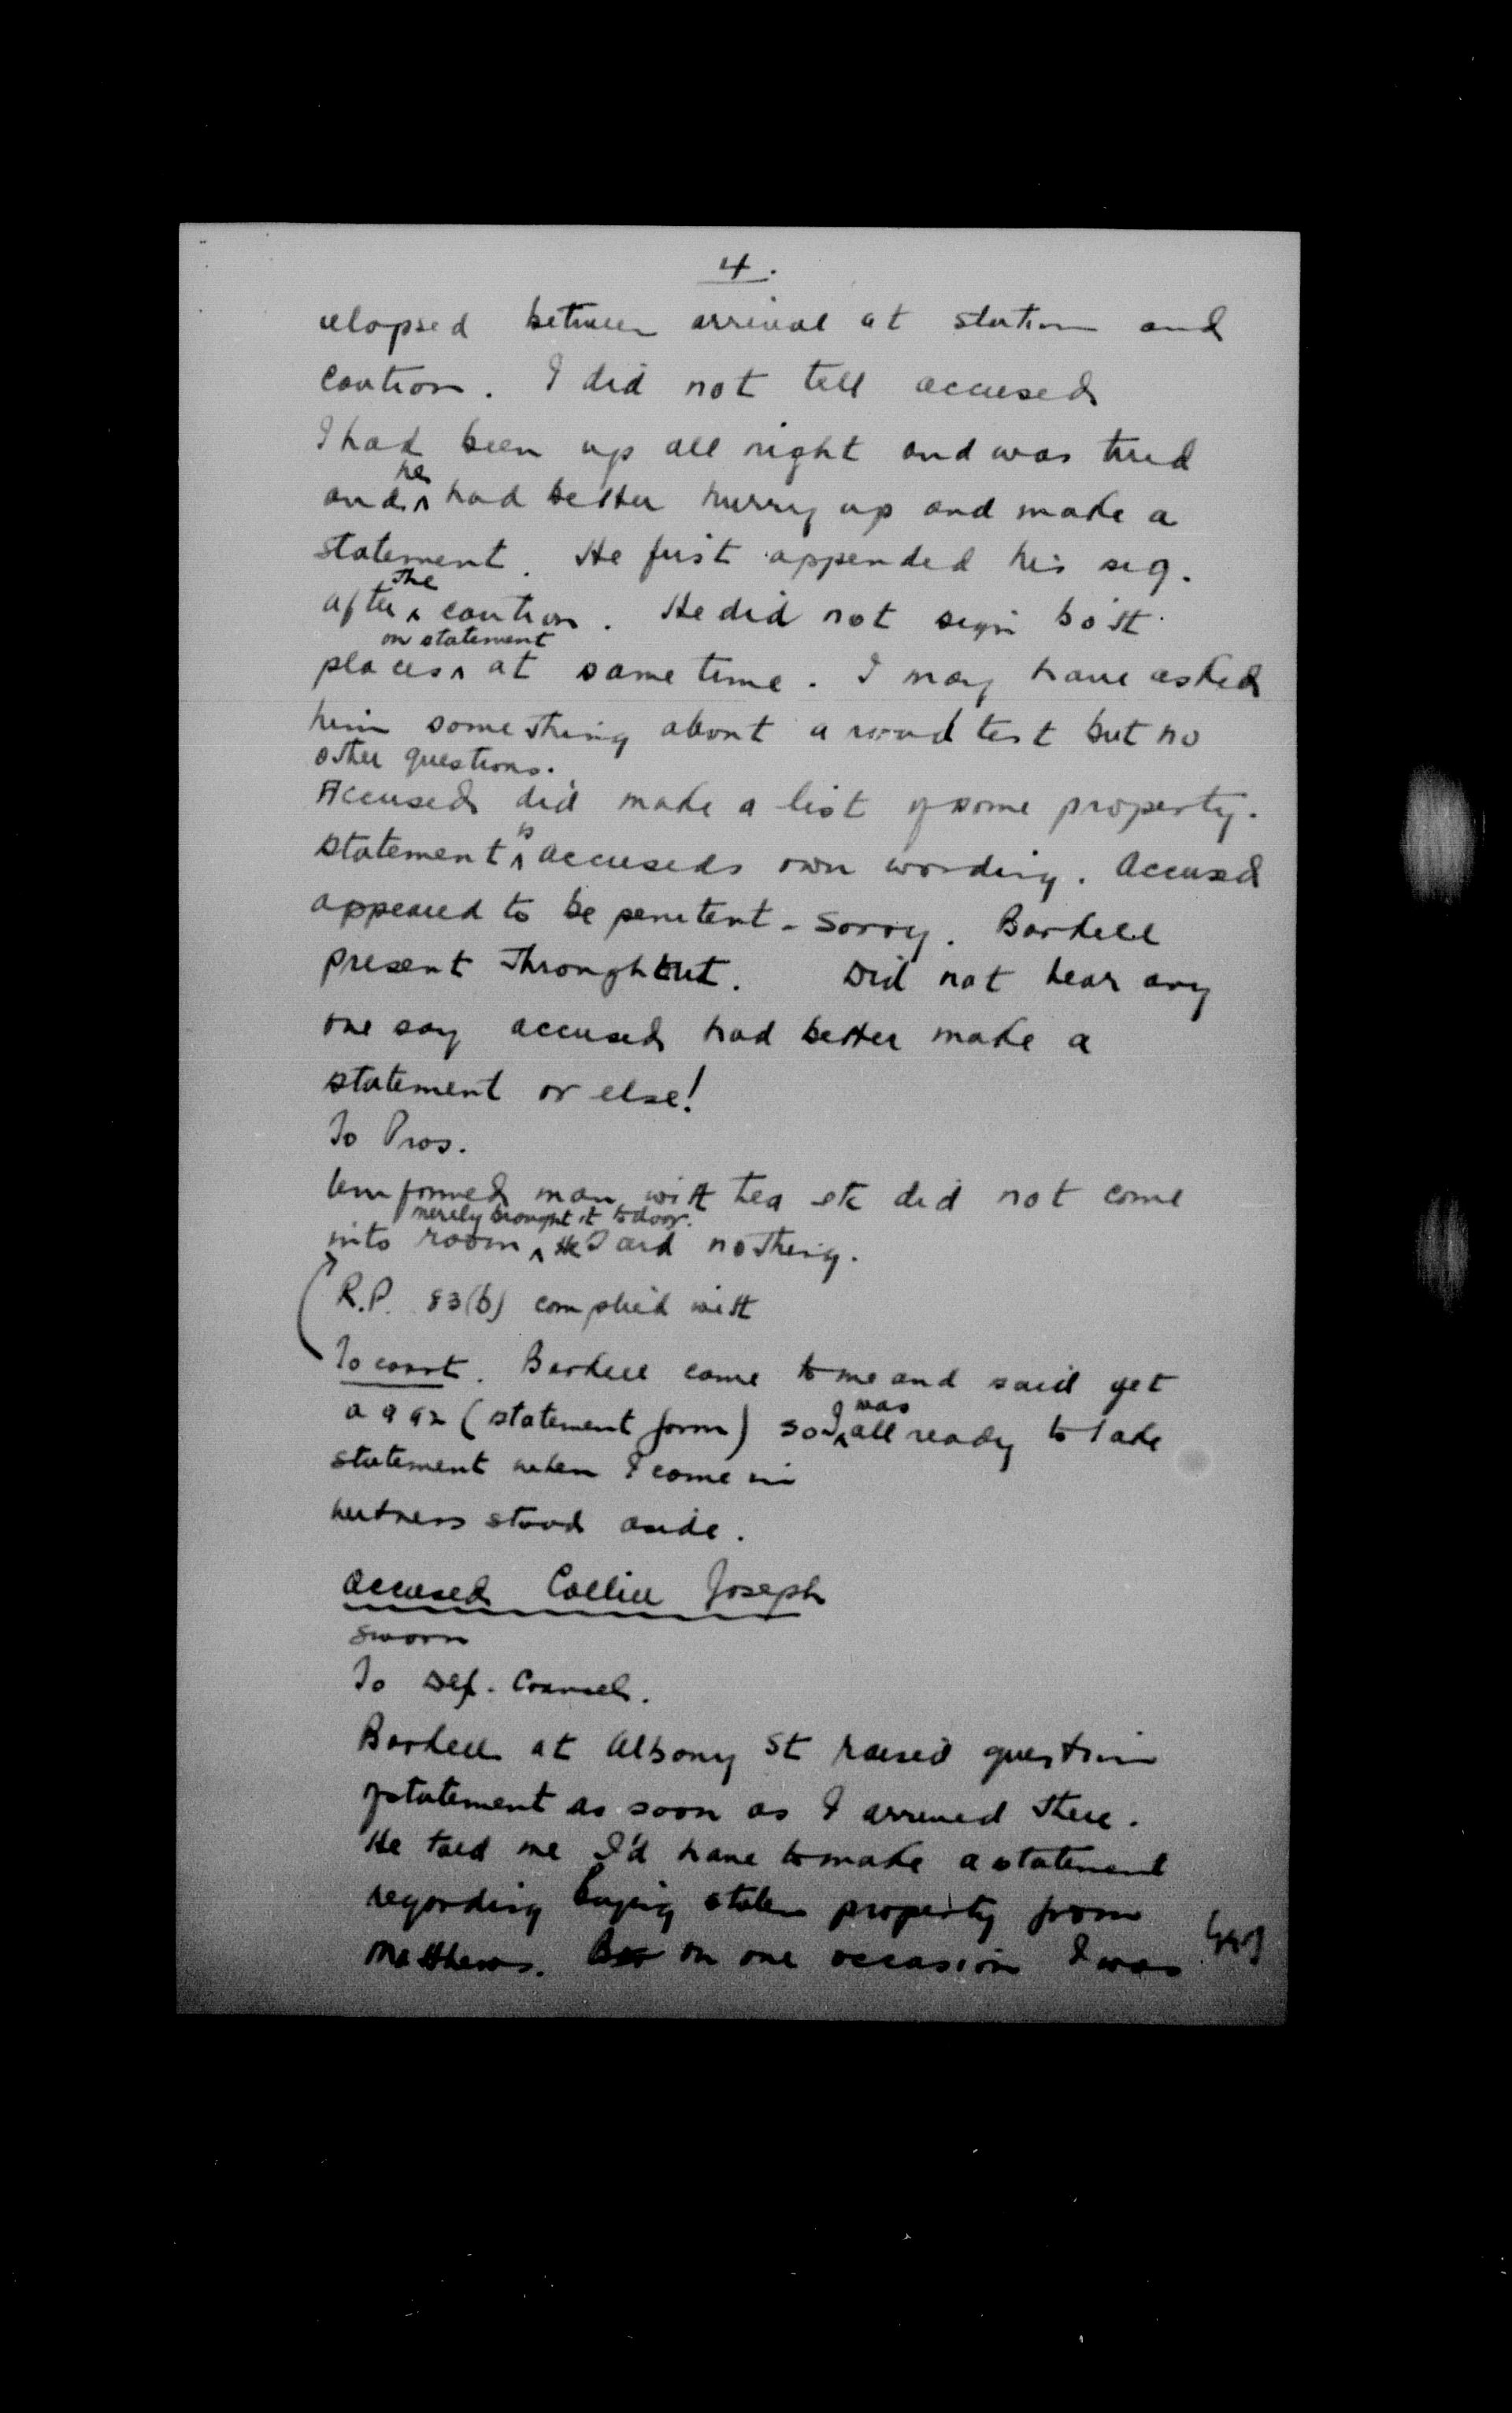 4.
elapsed between arrival at station and
caution. I did not tell accused
I had been up all night and was tired
and he had better hurry up and make a
statement. He first appended his sig.
after the caution. He did not sign both
places on statement at same time. I may have asked
him something about a road test but no
other questions.
Accused did make a list of some property.
Statement is accuseds own wording. Accused
appeared to be penitent - sorry. Barkell
present throughout. Did not hear any
one say accused had better make a
statement or else!
To Pros.
Uniformed man with tea etc did not come
into room merely brought it to door. He said nothing.
R.P. 83(b) complied with
To court. Barkell came to me and said get
a 992 (statement form) so I was all ready to take
statement when I came in
Witness stood aside.
Accused Collier Joseph
Sworn
To Def. Counsel.
Barkell at Albany St raised question
of statement as soon as I arrived there.
He told me I'd have to make a statement
regarding buying stolen property from
Matthews. On one occasion I was